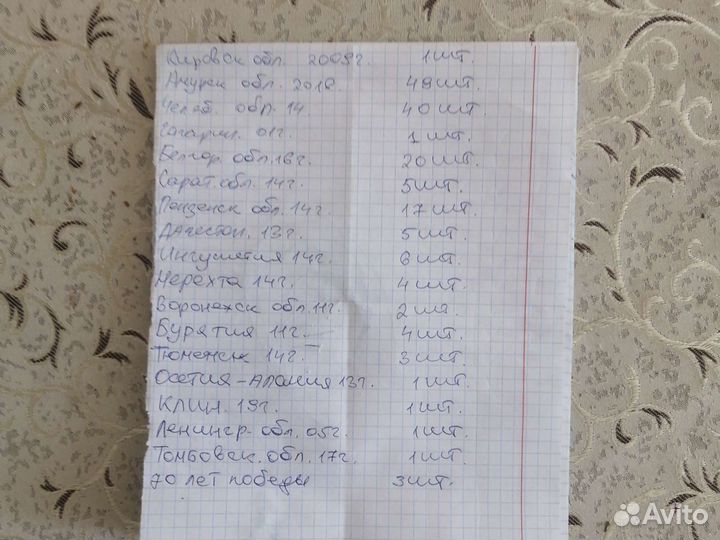 Кировск обл. 2009г. 1шт.
Амурск обл. 2016 49шт.
Челяб. обл. 14. 40шт.
Гагарин. 01г. 1шт.
Белгор. обл. 16г. 20шт.
Сарат. обл. 14г. 5шт.
Пензенск обл. 14г. 17шт.
Дагестан. 13г. 5шт.
Ингушетия 14г. 6шт.
Нерехта 14г. 4шт.
Воронежск обл. 11г. 2шт.
Бурятия 11г. 4шт.
Тюменск 14г. 3шт.
Осетия-Алания 13г. 1шт.
Клин. 19г. 1шт.
Ленингр. обл. 05г. 1шт.
Томбовск. обл. 17г. 1шт.
70 лет победы 3шт.
Avito